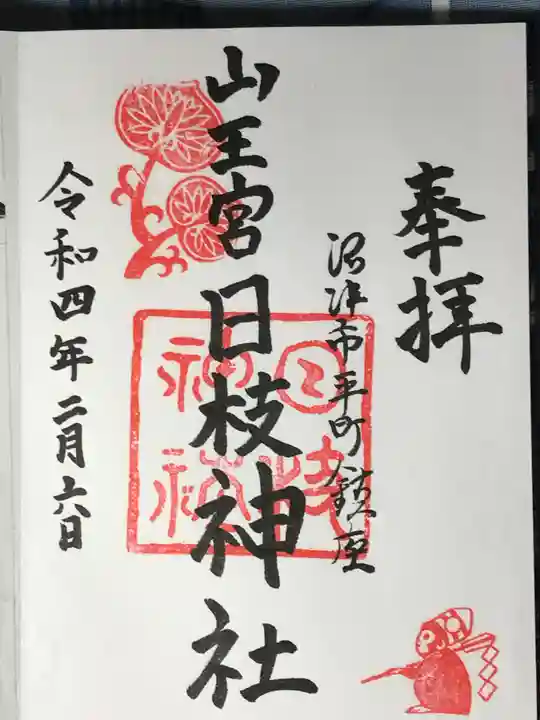 奉拝
沼津市平町鎮座
山王宮日枝神社
日枝
神社
令和四年二月六日